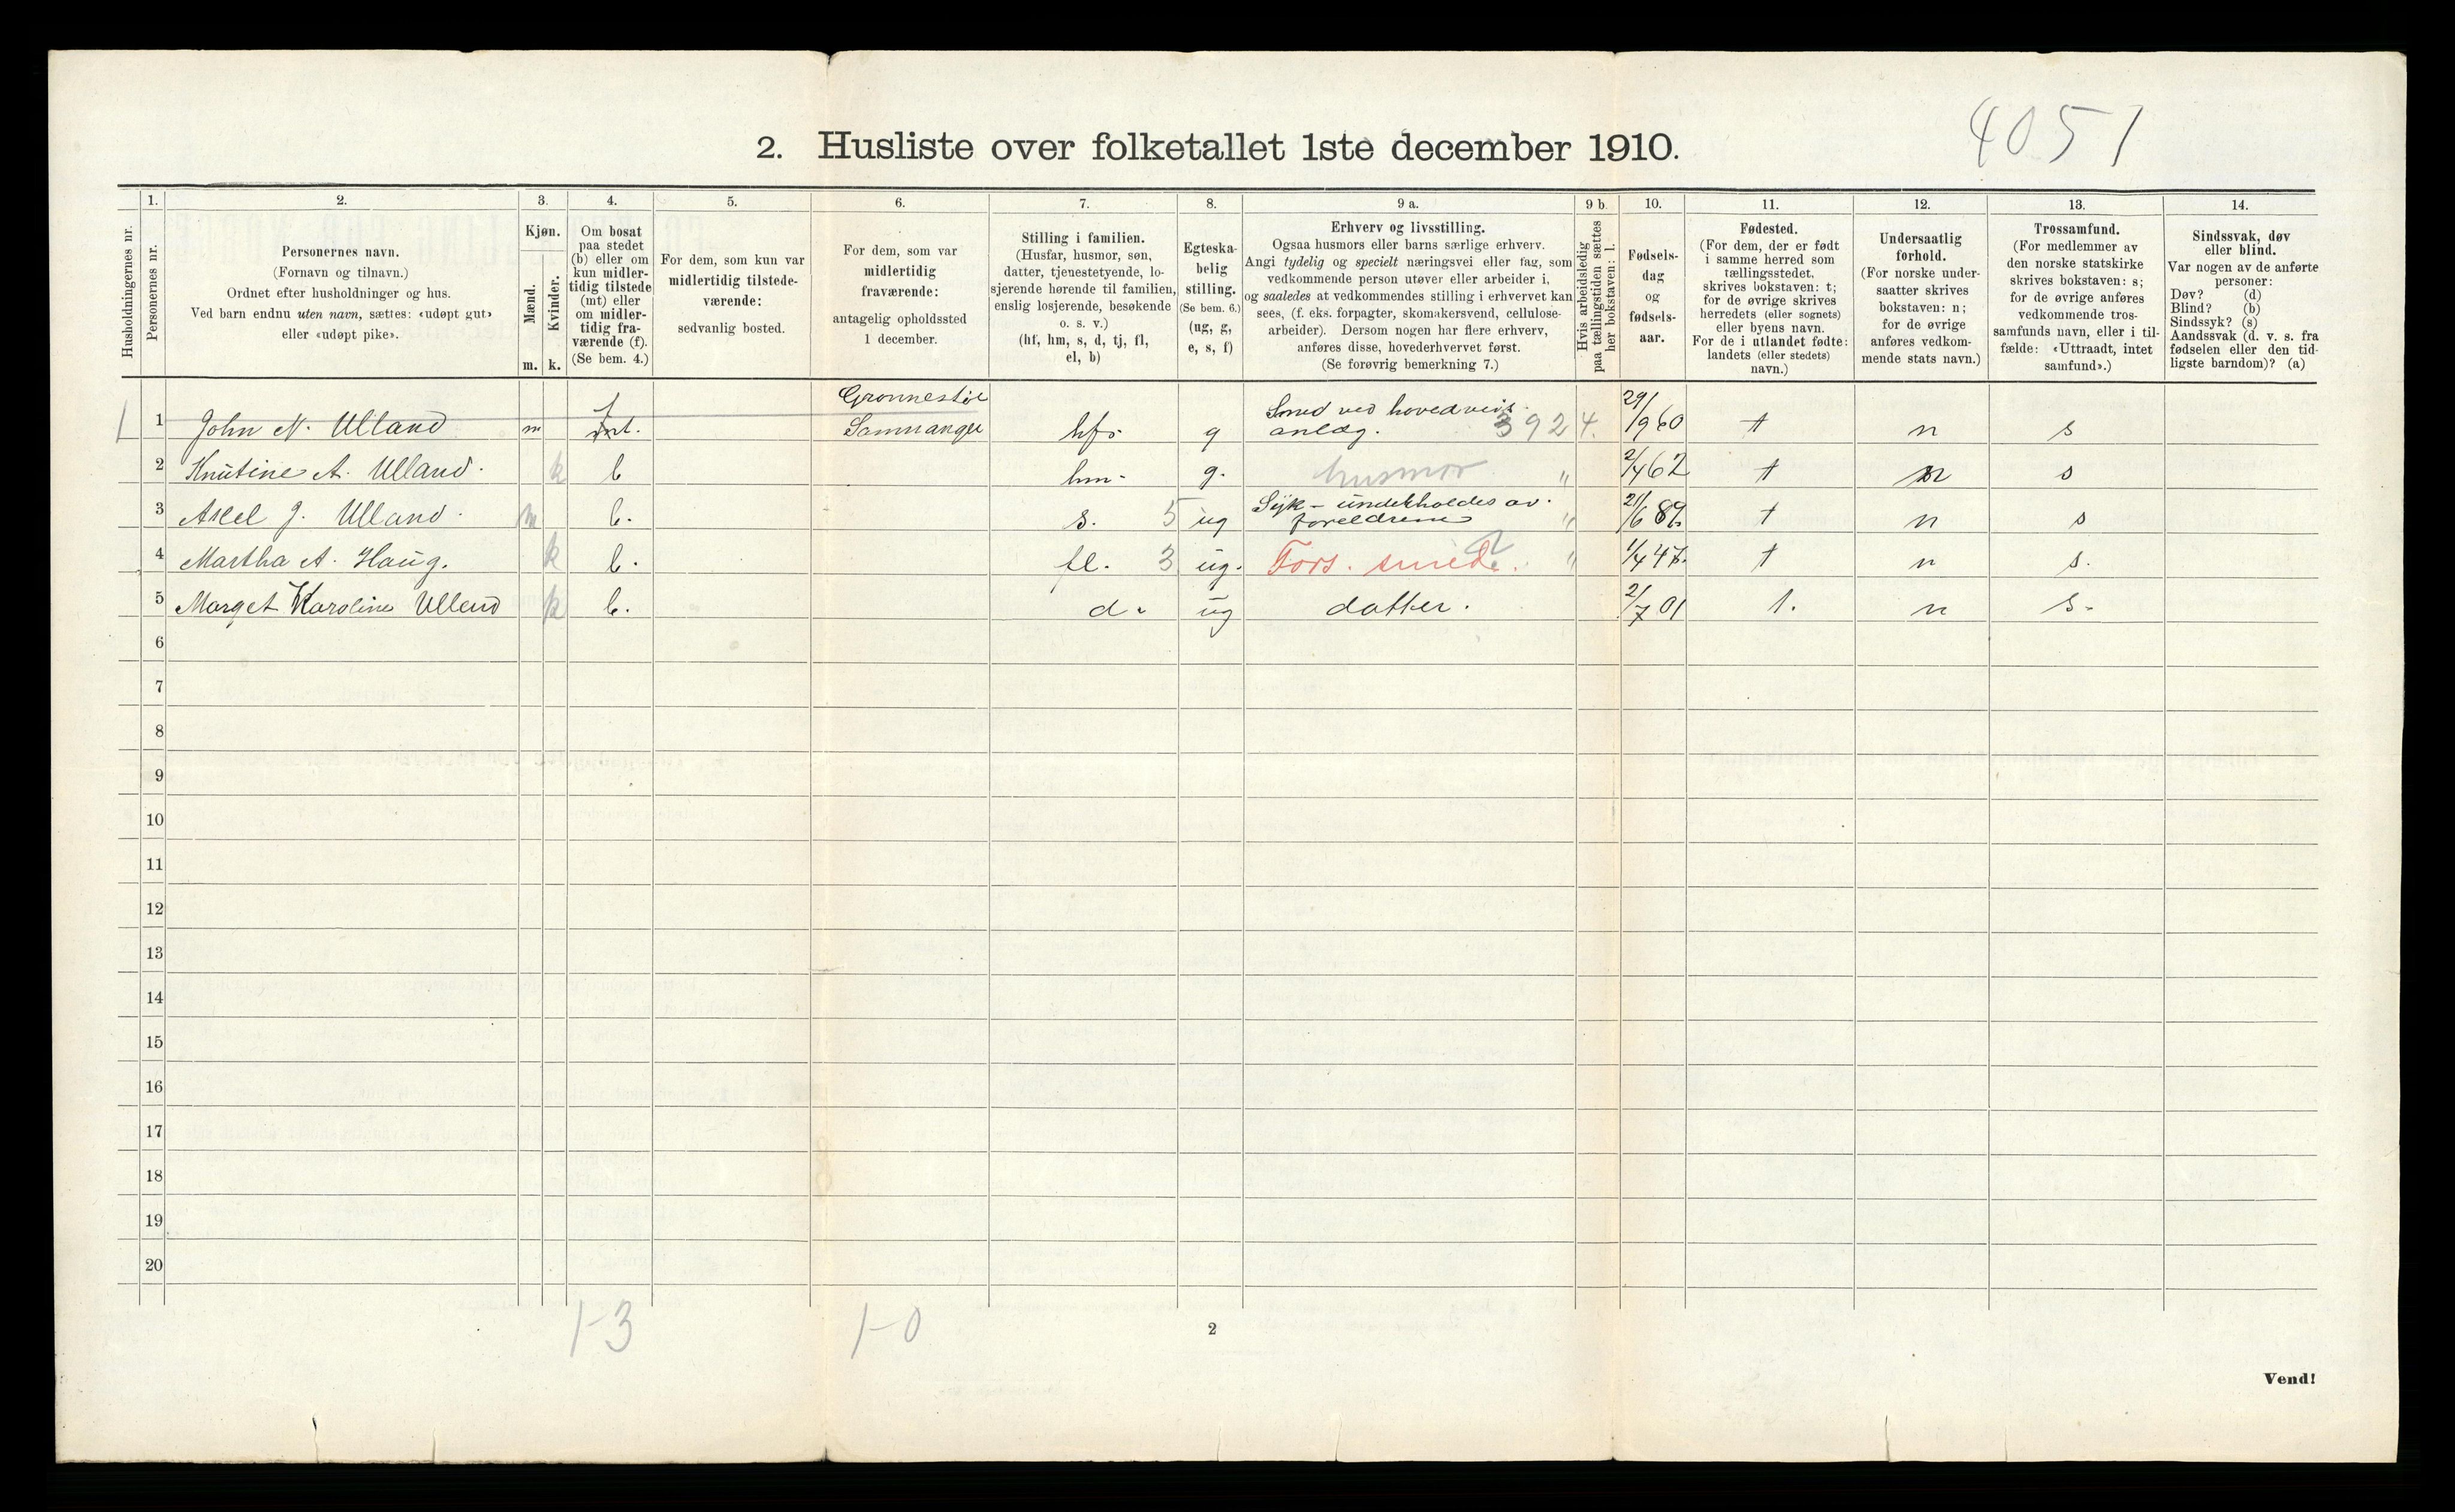 4051
2. Husliste over folketallet 1ste december 1910.
Husholdningernes nr.
1.
Personernes nr.
2.
Personernes navn.
(Fornavn og tilnavn.)
Ordnet efter husholdninger og hus.
Ved barn endnu uten navn, sættes: «udøpt gut»
eller «udøpt pike».
3.
Kjøn.
Mænd.
Kvinder.
m. k.
4.
Om bosat
paa stedet
(b) eller om
kun midler-
tidig tilstede
(mt) eller
om midler-
tidig fra-
værende (f).
(Se bem. 4.)
5.
For dem, som kun var
midlertidig tilstede-
værende:
sedvanlig bosted.
6.
For dem, som var
midlertidig
fraværende:
antagelig opholdssted
1 december.
7.
Stilling i familien.
(Husfar, husmor, søn,
datter, tjenestetyende, lo-
sjerende hørende til familien,
enslig losjerende, besøkende
o. s. v.)
(hf, hm, s, d, tj, fl,
el, b)
8.
Egteska-
belig
stilling.
(Se bem. 6.)
(ug, g,
e, s, f)
9 a.
Erhverv og livsstilling.
Ogsaa husmors eller barns særlige erhverv.
Angi tydelig og specielt næringsvei eller fag, som
vedkommende person utøver eller arbeider i,
og saaledes at vedkommendes stilling i erhvervet kan
sees, (f. eks. forpagter, skomakersvend, cellulose-
arbeider). Dersom nogen har flere erhverv,
anføres disse, hovederhvervet først.
(Se forøvrig bemerkning 7.)
9 b.
Hvis arbeidsledig
paa tællingstiden sættes
her bokstaven: l.
10.
Fødsels-
dag
og
fødsels-
aar.
11.
Fødested.
(For dem, der er født
i samme herred som
tællingsstedet,
skrives bokstaven: t;
for de øvrige skrives
herredets (eller sognets)
eller byens navn.
For de i utlandet fødte:
landets (eller stedets)
navn.)
12.
Undersaatlig
forhold.
(For norske under-
saatter skrives
bokstaven: n;
for de øvrige
anføres vedkom-
mende stats navn.)
13.
Trossamfund.
(For medlemmer av
den norske statskirke
skrives bokstaven: s;
for de øvrige anføres
vedkommende tros-
samfunds navn, eller i til-
fælde: «Uttraadt, intet
samfund».)
14.
Sindssvak, døv
eller blind.
Var nogen av de anførte
personer:
Døv? (d)
Blind? (b)
Sindssyk? (s)
Aandssvak (d. v. s. fra
fødselen eller den tid-
ligste barndom)? (a)
1 1 John N. Ulland m f mt. Samnanger hf. g Smed ved hovedveis- anlæg. 3924. 29/9 60 t n s
2 Knutine A. Ulland. k b hm. g. husmor " 2/4 62 t n s
3 Axel J. Ulland. m b. s. 5 ug Syk - underholdes av foreldrene " 21/6 89. t n s
4 Martha A. Haug. k b. fl. 3 ug. Fors. " 1/4 47. t n s.
5 Marget Karoline Ulland k b. d. ug datter. 2/7 01 t. n s.
6
7
8
9
10
11
12
13
14
15
16
17
18
19
20
1-3 1-0
2
Vend!